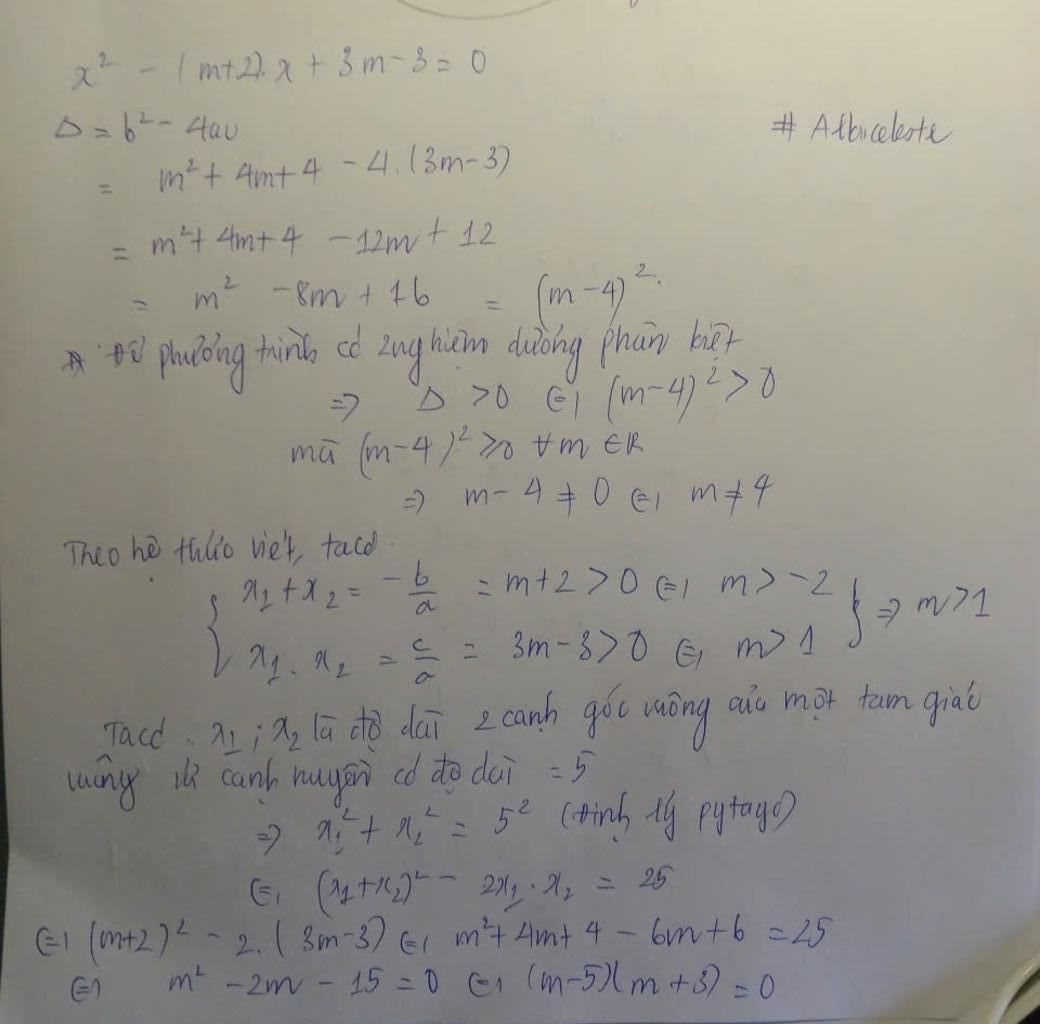 x² - (m+2).x + 3m-3 = 0
Δ = b² - 4ac
# Albiceleste
= m² + 4m + 4 - 4.(3m-3)
= m² + 4m + 4 - 12m + 12
= m² - 8m + 16 = (m-4)².
* Để phương trình có 2 nghiệm dương phân biệt
=> Δ > 0 <=> (m-4)² > 0
mà (m-4)² ≥ 0 ∀m ∈ R
=> m - 4 ≠ 0 <=> m ≠ 4
Theo hệ thức viét, ta có
{ x₁ + x₂ = -b/a = m+2 > 0 <=> m > -2
x₁ . x₂ = c/a = 3m-3 > 0 <=> m > 1 } => m > 1
Ta có . x₁ ; x₂ là độ dài 2 cạnh góc vuông của một tam giác
vuông và cạnh huyền có độ dài = 5
=> x₁² + x₂² = 5² (định lý pytago)
<=> (x₁+x₂)² - 2x₁ . x₂ = 25
<=> (m+2)² - 2.(3m-3) <=> m² + 4m + 4 - 6m + 6 = 25
<=> m² - 2m - 15 = 0 <=> (m-5)(m+3) = 0